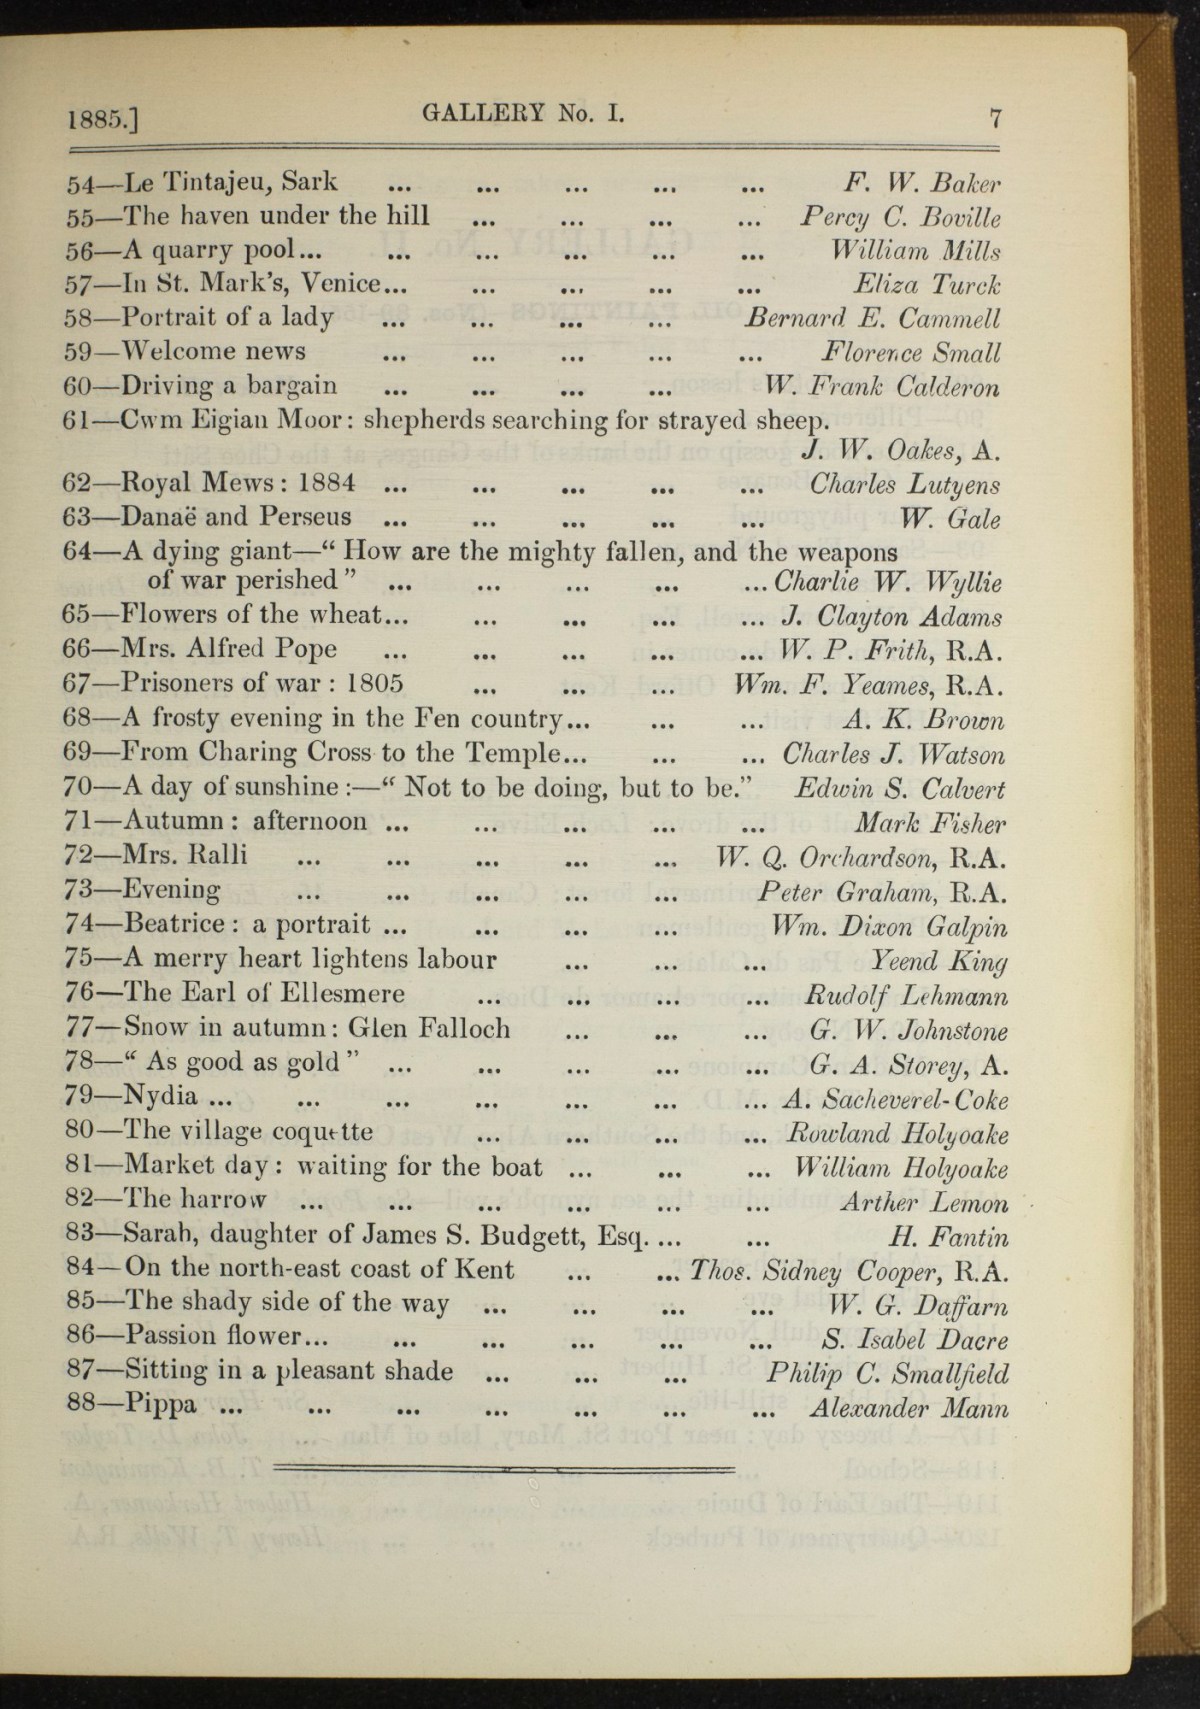 1885.] GALLERY No. I. 7
54—Le Tintajeu, Sark ... ... ... ... ... F. W. Baker
55—The haven under the hill ... ... ... ... Percy C. Boville
56—A quarry pool... ... ... ... ... ... William Mills
57—In St. Mark's, Venice... ... ... ... ... Eliza Turck
58—Portrait of a lady ... ... ... ... Bernard E. Cammell
59—Welcome news ... ... ... ... ... Florence Small
60—Driving a bargain ... ... ... ... W. Frank Calderon
61—Cwm Eigian Moor: shepherds searching for strayed sheep.
J. W. Oakes, A.
62—Royal Mews: 1884 ... ... ... ... ... Charles Lutyens
63—Danaë and Perseus ... ... ... ... ... W. Gale
64—A dying giant—“ How are the mighty fallen, and the weapons
of war perished ” ... ... ... ... ... Charlie W. Wyllie
65—Flowers of the wheat... ... ... ... ... J. Clayton Adams
66—Mrs. Alfred Pope ... ... ... ... ... W. P. Frith, R.A.
67—Prisoners of war : 1805 ... ... ... Wm. F. Yeames, R.A.
68—A frosty evening in the Fen country... ... ... A. K. Brown
69—From Charing Cross to the Temple... ... ... Charles J. Watson
70—A day of sunshine :—“ Not to be doing, but to be.” Edwin S. Calvert
71—Autumn : afternoon ... ... ... ... ... Mark Fisher
72—Mrs. Ralli ... ... ... ... ... W. Q. Orchardson, R.A.
73—Evening ... ... ... ... ... Peter Graham, R.A.
74—Beatrice : a portrait ... ... ... ... Wm. Dixon Galpin
75—A merry heart lightens labour ... ... ... Yeend King
76—The Earl of Ellesmere ... ... ... ... Rudolf Lehmann
77—Snow in autumn: Glen Falloch ... ... ... G. W. Johnstone
78—“ As good as gold ” ... ... ... ... ... G. A. Storey, A.
79—Nydia ... ... ... ... ... ... ... A. Sacheverel-Coke
80—The village coquette ... ... ... ... Rowland Holyoake
81—Market day : waiting for the boat ... ... ... William Holyoake
82—The harrow ... ... ... ... ... ... Arther Lemon
83—Sarah, daughter of James S. Budgett, Esq. ... ... H. Fantin
84—On the north-east coast of Kent ... ... Thos. Sidney Cooper, R.A.
85—The shady side of the way ... ... ... ... W. G. Daffarn
86—Passion flower... ... ... ... ... ... S. Isabel Dacre
87—Sitting in a pleasant shade ... ... ... Philip C. Smallfield
88—Pippa ... ... ... ... ... ... ... Alexander Mann